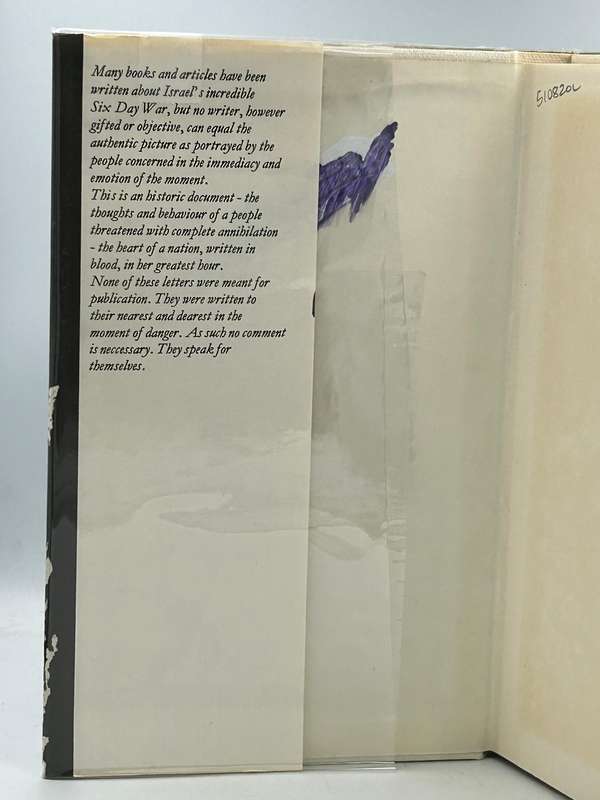 Many books and articles have been
written about Israel's incredible
Six Day War, but no writer, however
gifted or objective, can equal the
authentic picture as portrayed by the
people concerned in the immediacy and
emotion of the moment.
This is an historic document - the
thoughts and behaviour of a people
threatened with complete annihilation
- the heart of a nation, written in
blood, in her greatest hour.
None of these letters were meant for
publication. They were written to
their nearest and dearest in the
moment of danger. As such no comment
is neccessary. They speak for
themselves.